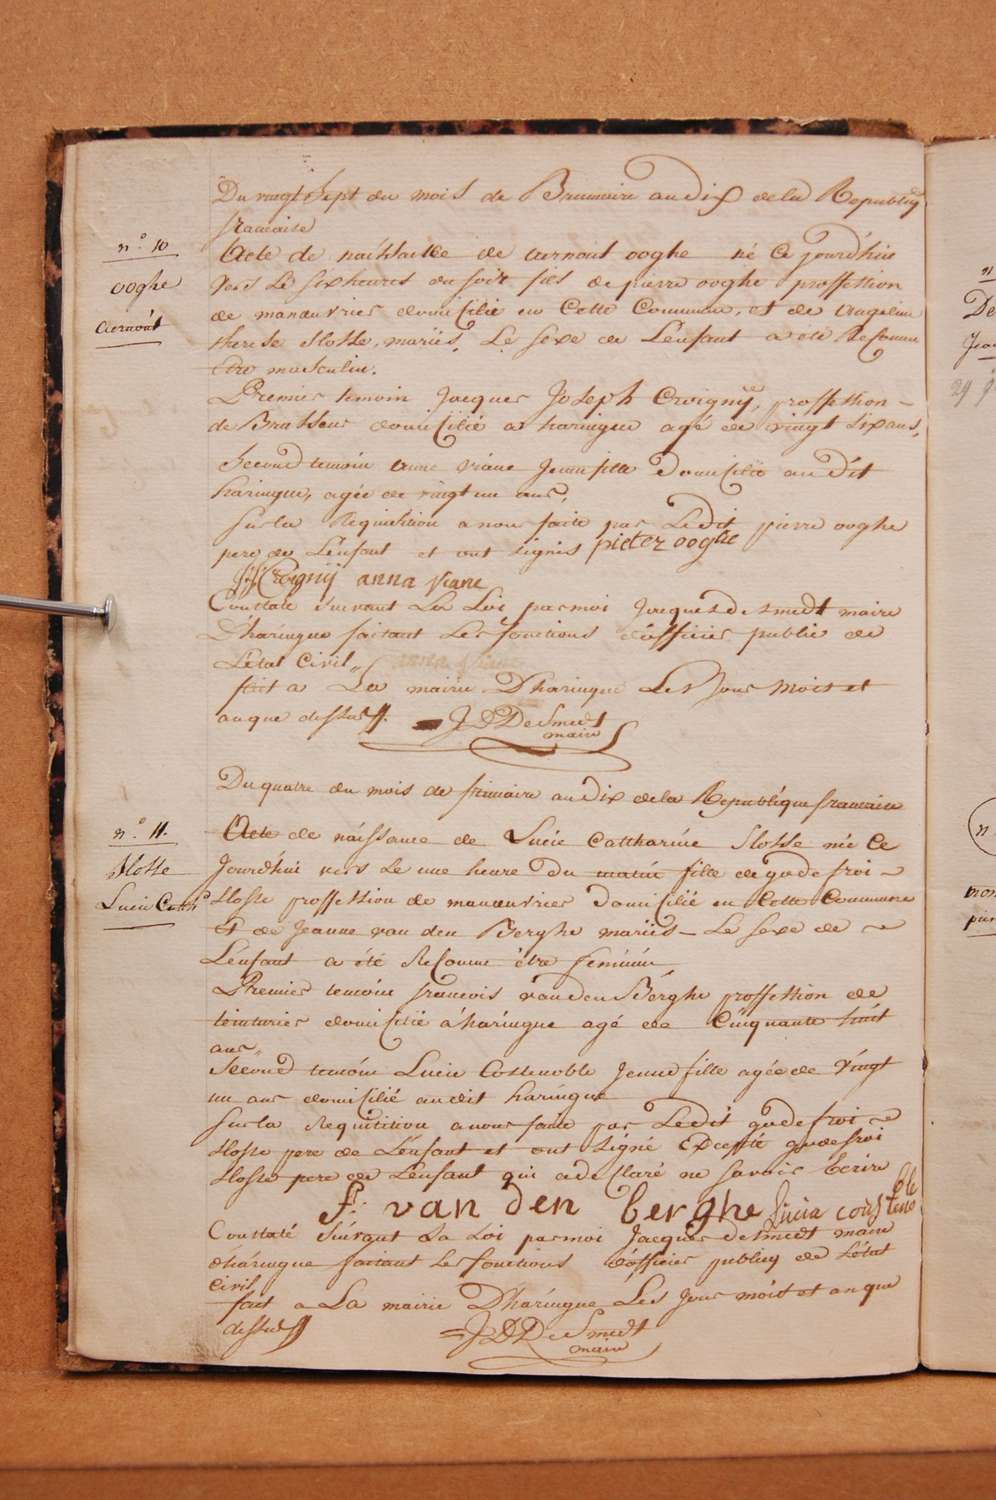 Du vingt sept du mois de Brumaire an dix de la Republiq
francaise
n.o 10
ooghe
aernout
Acte de naissance de aernout ooghe né ce jourdhui
vers le six heures du soir fils de pierre ooghe proffession
de manœuvrier domicilié en cette commune, et de
therese Slosse, mariés. Le sexe de L'enfant a été Reconnu
Etre masculin.
Premier temoin Jacques Joseph Crvigny, proffession
de Brasseur domicilié a haringue agé de vingt six ans,
Second temoin anne viane Jeune fille domicilié au dit
haringue, agée de vingt un ans,
Sur la Requisition a nous faite par Ledit pierre ooghe
pere de L'enfant et ont signés pieter ooghe
anna viane
Constaté suivant La Loi par moi Jacques de Smedt maire
D'haringue faisant Les fonctions d'officier public de
L'etat Civil
fait a La mairie D'haringue Les Jour mois et
an que dessus. J D DeSmedt
maire
Du quatre du mois de frimaire an dix de la Republique francaise
n.o 11.
Slosse
Lucie Cath
Acte de naissance de Lucie Cattharine Slosse né ce
Jourdhui vers le une heure du matin fille de godefroi
Slosse proffession de manœuvrier domicilié en cette Commune
et de Jeanne van den Berghe mariés Le sexe de
L'enfant a été Reconnu être féminin
Premier temoin francois vanden Berghe proffession de
teinturier domicilié a haringue agé de Cinquante huit
ans,
Second temoin Lucie Costenoble Jeune fille agée de vingt
un ans domicilié au dit haringue
Sur la Requisition a nous faite par Ledit godefroi
Slosse pere de L'enfant et ont signé Excepté godefroi
Slosse pere de L'enfant qui a declaré ne savoir Ecrire
F. van den berghe lucia constenoble
Constaté suivant La Loi par moi Jacques deSmedt maire
d'haringue faisant les fonctions d'officier publiq de L'état
Civil
fait a La mairie D'haringue Les Jour mois et an que
dessus J D DeSmedt
maire